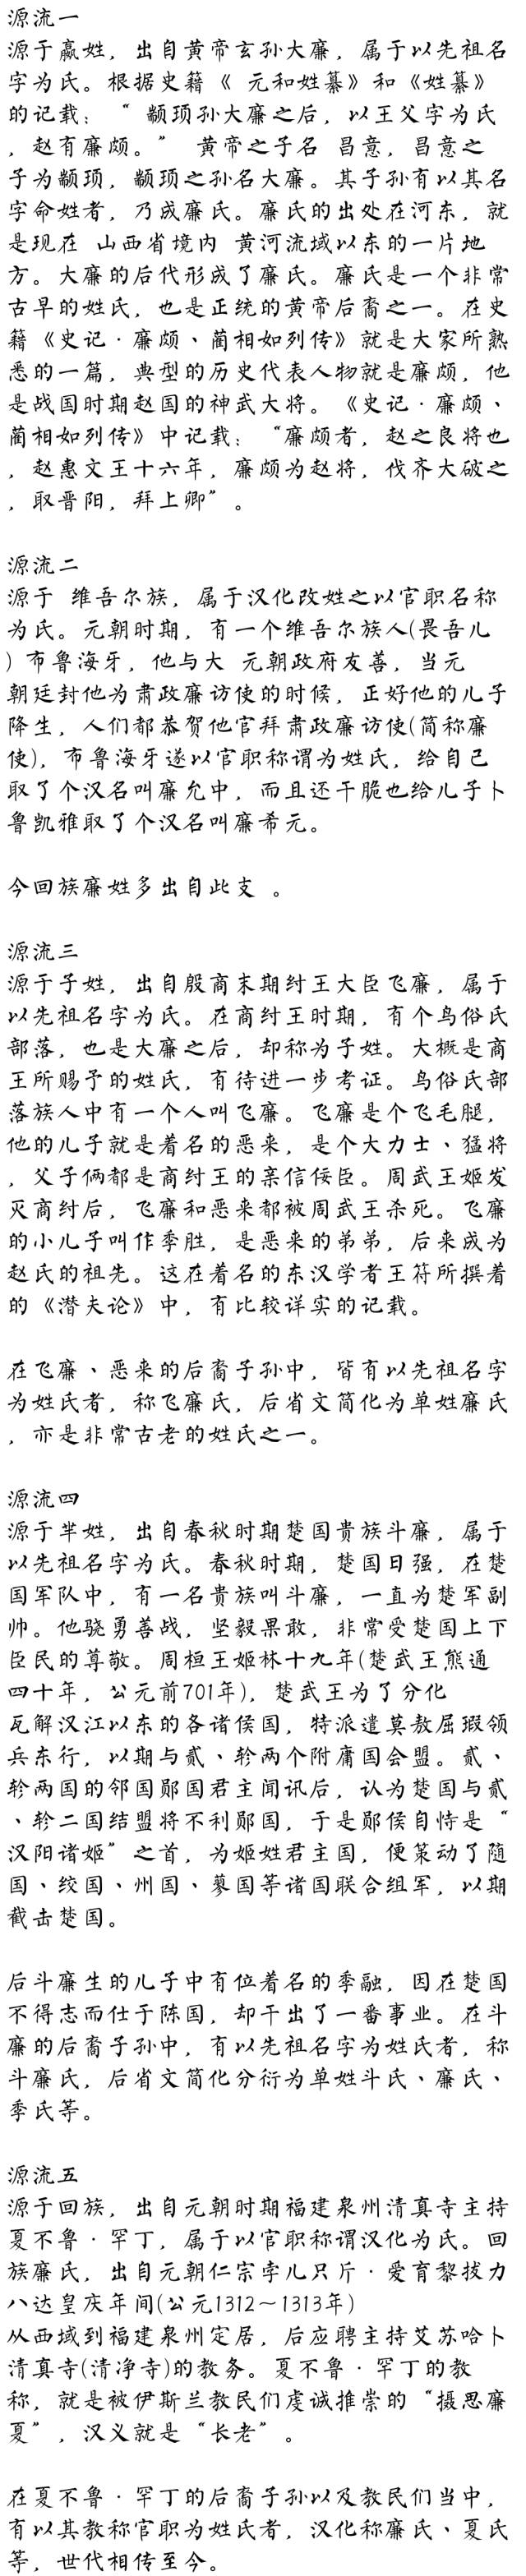 源流一
源于嬴姓，出自黄帝玄孙大廉，属于以先祖名
字为氏。根据史籍《 元和姓纂》和《姓纂》
的记载：“ 颛顼孙大廉之后，以王父字为氏
，赵有廉颇。” 黄帝之子名 昌意，昌意之
子为颛顼，颛顼之孙名大廉。其子孙有以其名
字命姓者，乃成廉氏。廉氏的出处在河东，就
是现在 山西省境内 黄河流域以东的一片地
方。大廉的后代形成了廉氏。廉氏是一个非常
古早的姓氏，也是正统的黄帝后裔之一。在史
籍《史记·廉颇、蔺相如列传》就是大家所熟
悉的一篇，典型的历史代表人物就是廉颇，他
是战国时期赵国的神武大将。《史记·廉颇、
蔺相如列传》中记载：“廉颇者，赵之良将也
，赵惠文王十六年，廉颇为赵将，伐齐大破之
，取晋阳，拜上卿”。
源流二
源于 维吾尔族，属于汉化改姓之以官职名称
为氏。元朝时期，有一个维吾尔族人(畏吾儿
)布鲁海牙，他与大 元朝政府友善，当元
朝廷封他为肃政廉访使的时候，正好他的儿子
降生，人们都恭贺他官拜肃政廉访使(简称廉
使)，布鲁海牙遂以官职称谓为姓氏，给自己
取了个汉名叫廉允中，而且还干脆也给儿子卜
鲁凯雅取了个汉名叫廉希元。
今回族廉姓多出自此支 。
源流三
源于子姓，出自殷商末期纣王大臣飞廉，属于
以先祖名字为氏。在商纣王时期，有个鸟俗氏
部落，也是大廉之后，却称为子姓。大概是商
王所赐予的姓氏，有待进一步考证。鸟俗氏部
落族人中有一个人叫飞廉。飞廉是个飞毛腿，
他的儿子就是着名的恶来，是个大力士、猛将
，父子俩都是商纣王的亲信佞臣。周武王姬发
灭商纣后，飞廉和恶来都被周武王杀死。飞廉
的小儿子叫作季胜，是恶来的弟弟，后来成为
赵氏的祖先。这在着名的东汉学者王符所撰着
的《潜夫论》中，有比较详实的记载。
在飞廉、恶来的后裔子孙中，皆有以先祖名字
为姓氏者，称飞廉氏，后省文简化为单姓廉氏
，亦是非常古老的姓氏之一。
源流四
源于芈姓，出自春秋时期楚国贵族斗廉，属于
以先祖名字为氏。春秋时期，楚国日强，在楚
国军队中，有一名贵族叫斗廉，一直为楚军副
帅。他骁勇善战，坚毅果敢，非常受楚国上下
臣民的尊敬。周桓王姬林十九年(楚武王熊通
四十年，公元前701年)，楚武王为了分化
瓦解汉江以东的各诸侯国，特派遣莫敖屈瑕领
兵东行，以期与贰、轸两个附庸国会盟。贰、
轸两国的邻国郧国君主闻讯后，认为楚国与贰
、轸二国结盟将不利郧国，于是郧侯自恃是“
汉阳诸姬”之首，为姬姓君主国，便策动了随
国、绞国、州国、蓼国等诸国联合组军，以期
截击楚国。
后斗廉生的儿子中有位着名的季融，因在楚国
不得志而仕于陈国，却干出了一番事业。在斗
廉的后裔子孙中，有以先祖名字为姓氏者，称
斗廉氏，后省文简化分衍为单姓斗氏、廉氏、
季氏等。
源流五
源于回族，出自元朝时期福建泉州清真寺主持
夏不鲁·罕丁，属于以官职称谓汉化为氏。回
族廉氏，出自元朝仁宗孛儿只斤·爱育黎拔力
八达皇庆年间(公元1312～1313年)
从西域到福建泉州定居，后应聘主持艾苏哈卜
清真寺(清净寺)的教务。夏不鲁·罕丁的教
称，就是被伊斯兰教民们虔诚推崇的“摄思廉
夏”，汉义就是“长老”。
在夏不鲁·罕丁的后裔子孙以及教民们当中，
有以其教称官职为姓氏者，汉化称廉氏、夏氏
等，世代相传至今。